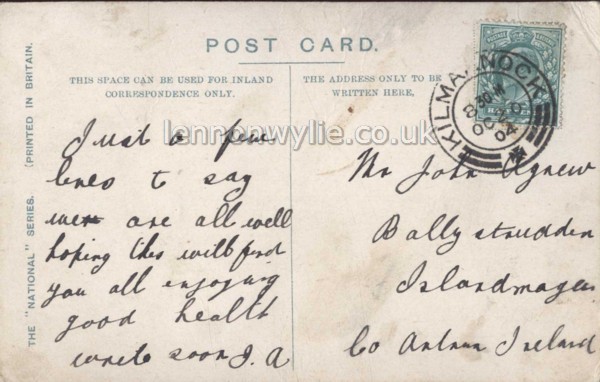 POST CARD.
THIS SPACE CAN BE USED FOR INLAND
CORRESPONDENCE ONLY.
THE ADDRESS ONLY TO BE
WRITTEN HERE,
THE "NATIONAL" SERIES. (PRINTED IN BRITAIN.
lennonwylie.co.uk
KILMARNOCK
Just a few
lines to say
we are all well
hoping this will find
you all enjoying
good health
write soon J.A
Mr John Agnew
Ballystrudden
Islandmagee
Co Antrim Ireland